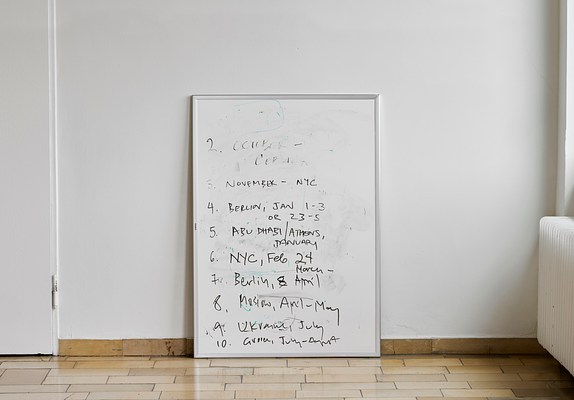 2. OCTOBER -
3. NOVEMBER - NYC
4. BERLIN, JAN 1-3
OR 23-5
5. ABU DHABI/ATHENS,
JANUARY
6. NYC, Feb 24
March -
7. Berlin, & April
8. April-May
9. Ukraine, July
10. July-August